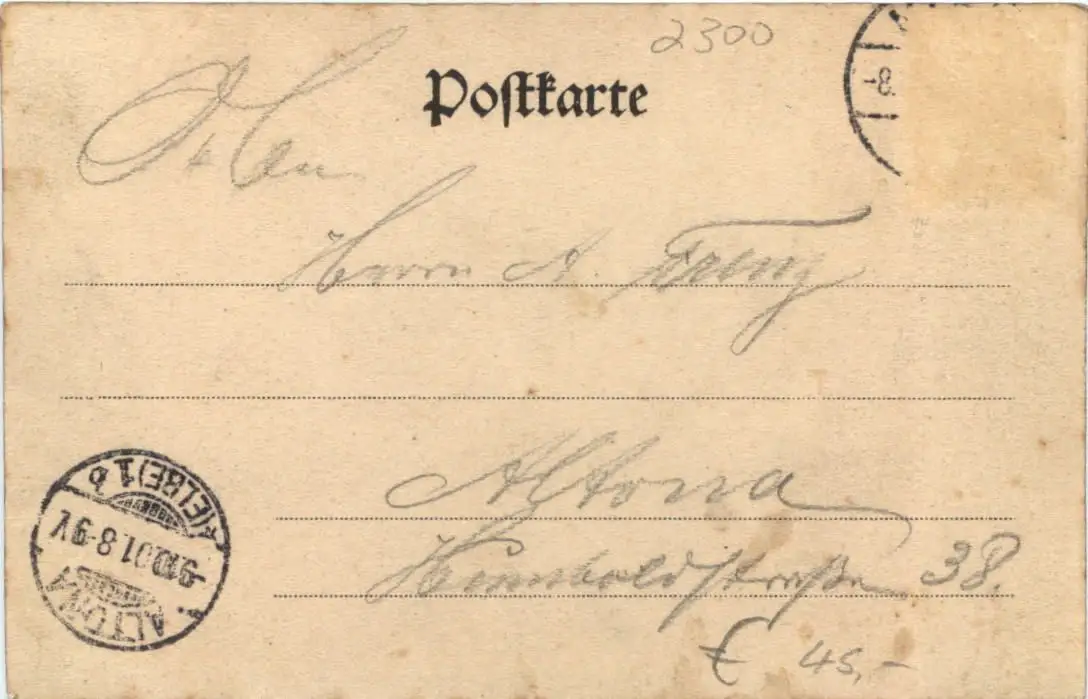 2300
Postkarte
-8.
Herrn A. Frenz
Altona
Humboldtstraße 38.
ALTONA
(ELBE) 1 b
-9.10.01.8-9V.
€ 45,-